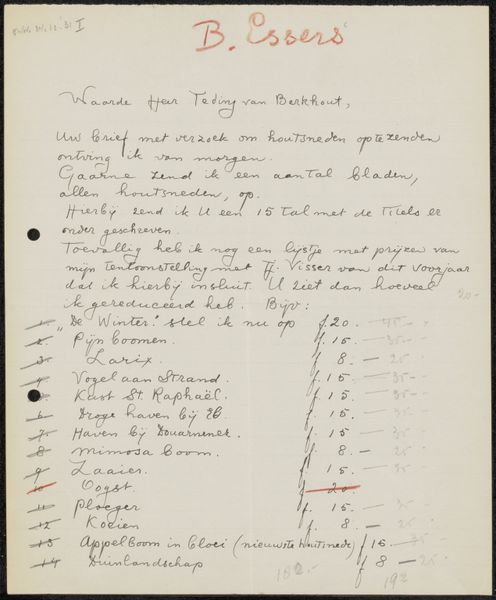 I
B. Essers
Waarde Heer Teding van Berkhout,
Uw brief met verzoek om houtsneden op te zenden
ontving ik van morgen.
Gaarne zend ik een aantal bladen,
allen houtsneden, op.
Hierbij zend ik U een 15 tal met de Titels er
onder geschreven.
Toevallig heb ik nog een lijstje met prijzen van
mijn tentoonstelling met Tj. Visser van dit voorjaar
dat ik hierbij insluit. U ziet dan hoeveel
ik gereduceerd heb. Bijv: 20-
1 "De Winter" stel ik nu op f. 20. — 40 -
2 Pijnboomen. f. 15. — 35 -
3 Larix. f. 8 — 25
4 Vogel aan Strand. f. 15. — 35 -
5 Kust St. Raphaël. f. 15. — 35 -
6 Droge haven bij Eb. f. 15 — 35 -
7 Haven bij Douarnenez. f. 15 — 35 -
8 Mimosa boom. f. 8 — 25
9 Zaaier. f. 15 — 35
10 Oogst. f 20
11 Ploeger f. 15 — 35
12 Koeien f. 8 — 25
13 Appelboom in bloei (nieuwste houtsnede) f 15 — 35
14 Duinlandschap f 8 — 25
182.- 192